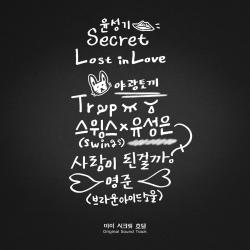 윤성기
Secret
Lost in Love
야광토끼
Trap
스윙스×유성은
(Swings)
사랑이 된걸까?
영준
(브라운아이드소울)
미미 시크릿 호텔
Original Sound Track